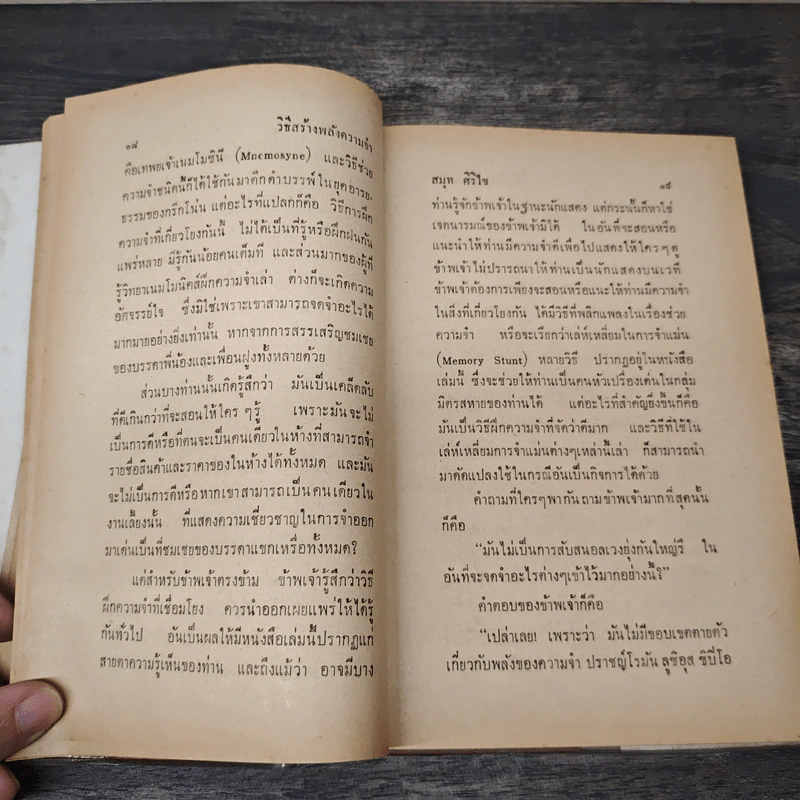 ๑๘ วิธีสร้างพลังความจำ
คือเทพยเจ้าเนมโมซินี (Mnemosyne) และวิธีช่วย
ความจำชนิดนี้ก็ได้ใช้กันมาดึกดำบรรพ์ในยุคอารย-
ธรรมของกรีกโน่น แต่อะไรที่แปลกก็คือ วิธีการฝึก
ความจำที่เกี่ยวโยงกันนี้ ไม่ได้เป็นที่รู้หรือฝึกฝนกัน
แพร่หลาย มีรู้กันน้อยคนเต็มที และส่วนมากของผู้ที่
รู้วิทยาเนมโมนิคส์ฝึกความจำเล่า ต่างก็จะเกิดความ
อัศจรรย์ใจ ซึ่งมิใช่เพราะเขาสามารถจดจำอะไรได้
มากมายอย่างยิ่งเท่านั้น หากจากการสรรเสริญชมเชย
ของบรรดาพี่น้องและเพื่อนฝูงทั้งหลายด้วย
ส่วนบางท่านนั้นเกิดรู้สึกว่า มันเป็นเคล็ดลับ
ที่ดีเกินกว่าที่จะสอนให้ใคร ๆ รู้ เพราะมันจะไม่
เป็นการดีหรือที่ตนจะเป็นคนเดียวในห้างที่สามารถจำ
รายชื่อสินค้าและราคาของในห้างได้ทั้งหมด และมัน
จะไม่เป็นการดีหรือหากเขาสามารถเป็นคนเดียวใน
งานเลี้ยงนั้น ที่แสดงความเชี่ยวชาญในการจำออก
มาเด่นเป็นที่ชมเชยของบรรดาแขกเหรื่อทั้งหมด?
แต่สำหรับข้าพเจ้าตรงข้าม ข้าพเจ้ารู้สึกว่าวิธี
ฝึกความจำที่เชื่อมโยง ควรนำออกเผยแพร่ให้ได้รู้
กันทั่วไป อันเป็นผลให้มีหนังสือเล่มนี้ปรากฏแก่
สายตาความรู้เห็นของท่าน และถึงแม้ว่า อาจมีบาง
สมุท ศิริไข ๑๙
ท่านรู้จักข้าพเจ้าในฐานะนักแสดง แต่กระนั้นก็หาใช่
เจตนารมณ์ของข้าพเจ้ามิได้ ในอันที่จะสอนหรือ
แนะนำให้ท่านมีความจำดีเพื่อไปแสดงให้ใคร ๆ ดู
ข้าพเจ้าไม่ปรารถนาให้ท่านเป็นนักแสดงบนเวที
ข้าพเจ้าต้องการเพียงจะสอนหรือแนะให้ท่านมีความจำ
ในสิ่งที่เกี่ยวโยงกัน ได้มีวิธีที่พลิกแพลงในเรื่องช่วย
ความจำ หรือจะเรียกว่าเล่ห์เหลี่ยมในการจำแม่น
(Memory Stunt) หลายวิธี ปรากฏอยู่ในหนังสือ
เล่มนี้ ซึ่งจะช่วยให้ท่านเป็นคนหัวเปรื่องเด่นในกลุ่ม
มิตรสหายของท่านได้ แต่อะไรที่สำคัญยิ่งขึ้นก็คือ
มันเป็นวิธีฝึกความจำที่จัดว่าดีมาก และวิธีที่ใช้ใน
เล่ห์เหลี่ยมการจำแม่นต่างๆเหล่านี้เล่า ก็สามารถนำ
มาดัดแปลงใช้ในกรณีอันเป็นกิจการได้ด้วย
คำถามที่ใครๆพากันถามข้าพเจ้ามากที่สุดนั้น
ก็คือ
“มันไม่เป็นการสับสนอลเวงยุ่งกันใหญ่รึ ใน
อันที่จะจดจำอะไรต่างๆเข้าไว้มากอย่างนี้?”
คำตอบของข้าพเจ้าก็คือ
“เปล่าเลย! เพราะว่า มันไม่มีขอบเขตตายตัว
เกี่ยวกับพลังของความจำ ปราชญ์โรมัน ลูซิอุส ซิปิ่โอ